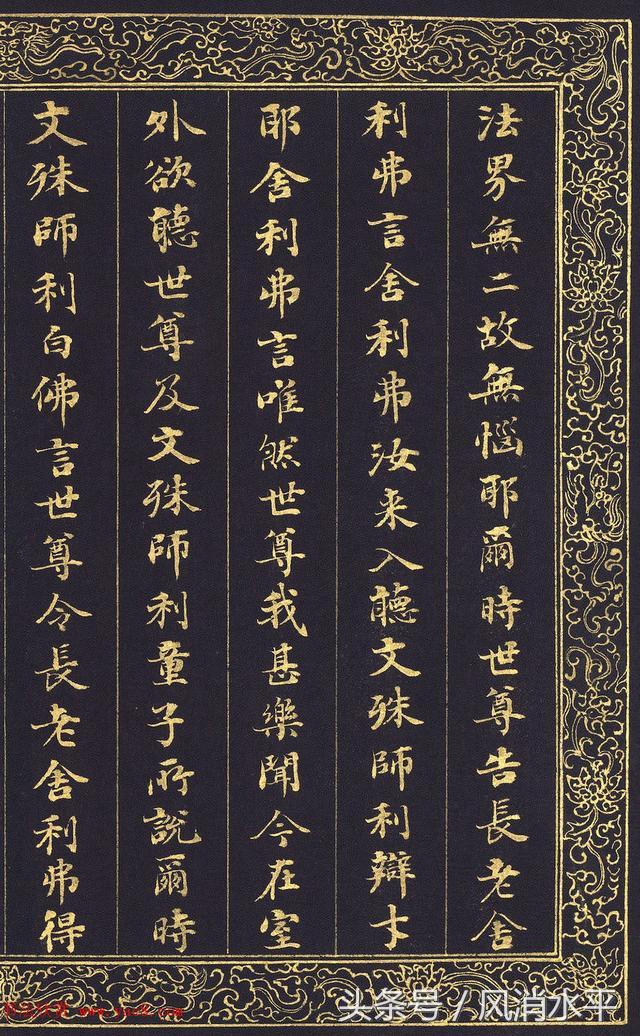 法界無二故無惱耶爾時世尊告長老舍
利弗言舍利弗汝来入聽文殊師利辯才
耶舍利弗言唯然世尊我甚樂聞今在室
外欲聽世尊及文殊師利童子所說爾時
文殊師利白佛言世尊令長老舍利弗得
头条号/风消水平